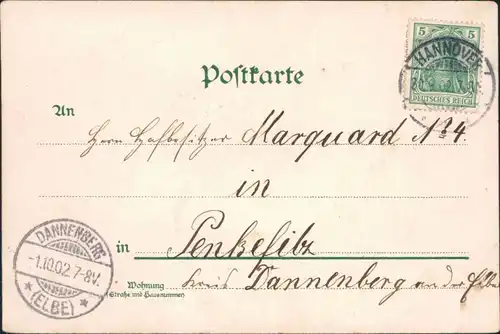 5 5
HANNOVER
DEUTSCHES REICH
Postkarte
An
Herrn Hofbesitzer Marquard No 4.
in
in Penkefitz
Wohnung
(Straße und Hausnummer)
Kreis Dannenberg an der Elbe
DANNENBERG
-1.10.02.7-8V.
* (ELBE) *